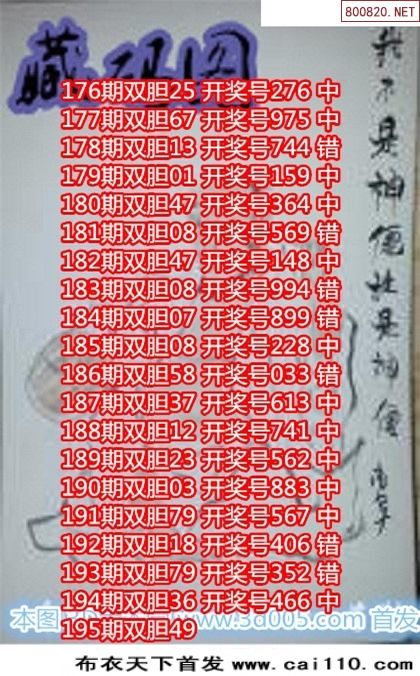 800820.NET
藏码图
176期双胆25 开奖号276 中
177期双胆67 开奖号975 中
178期双胆13 开奖号744 错
179期双胆01 开奖号159 中
180期双胆47 开奖号364 中
181期双胆08 开奖号569 错
182期双胆47 开奖号148 中
183期双胆08 开奖号994 错
184期双胆07 开奖号899 错
185期双胆08 开奖号228 中
186期双胆58 开奖号033 错
187期双胆37 开奖号613 中
188期双胆12 开奖号741 中
189期双胆23 开奖号562 中
190期双胆03 开奖号883 中
191期双胆79 开奖号567 中
192期双胆18 开奖号406 错
193期双胆79 开奖号352 错
194期双胆36 开奖号466 中
195期双胆49
我不是神仙胜是神仙
本图 www.3d005.com 首发
布衣天下首发 www.cai110.com